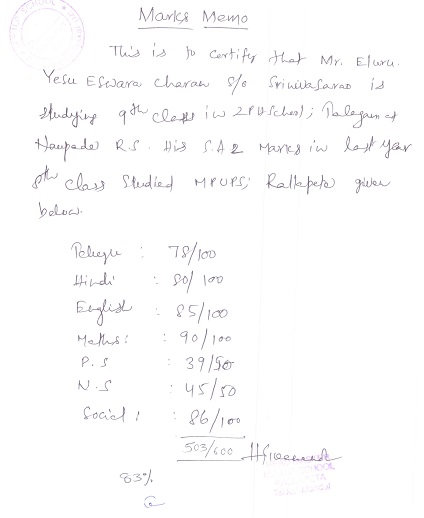 Marks Memo
This is to certify that Mr. Eluru.
Yesu Eswara charan S/o Srinivasarao is
studying 9th class in ZPH School;
Naupada R.S. His S.A 2 Marks in last year
8th class Studied MPUPS; Rallapeta given
below.
Telugu : 78/100
Hindi : 80/100
English : 85/100
Maths: : 90/100
P.S : 39/50
N.S : 45/50
Social : : 86/100
503/600
83%